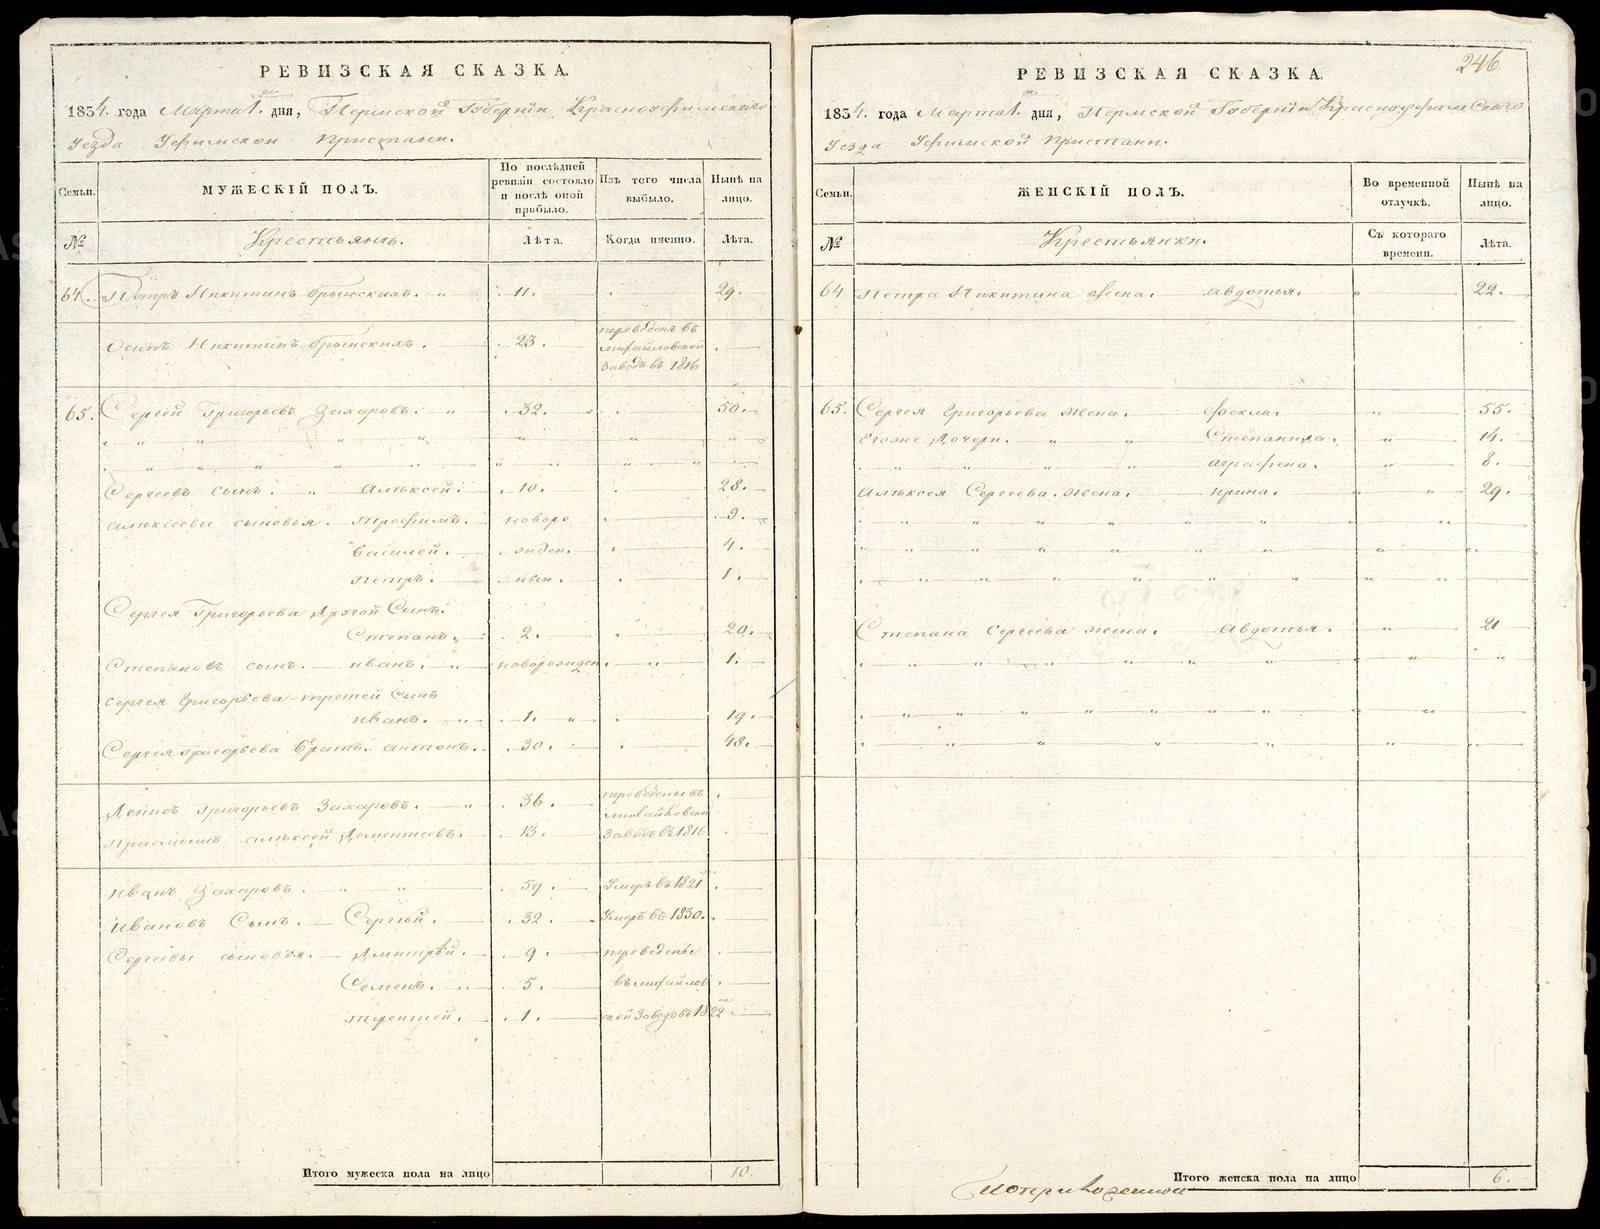 РЕВИЗСКАЯ СКАЗКА.
1834. года Марта 1. дня, Пермской Губернїи Красноуфимскаго
Уезда Уфимской Пристани.
Семьи.
МУЖЕСКІЙ ПОЛЪ.
По послѣдней ревизіи состояло и послѣ оной прибыло.
Изъ того числа выбыло.
Нынѣ на лицо.
№
Крестьянъ.
Лѣта.
Когда именно.
Лѣта.
64. Петръ Никитинъ 11. 29.
Осипъ Никитинъ 23. переведенъ въ
Михайловской
Заводъ въ 1816
65. Сергей Григорьевъ Захаровъ. 32. 50.
Сергеевъ сынъ. Алѣксей. 10. 28.
Алѣксеевы сыновья. Трофимъ. новоро 9.
Василей. жден. 4.
Петръ. ныи. 1.
Сергея Григорьева Другой Сынъ.
Степанъ. 2. 20.
Степановъ сынъ. Иванъ. новорожден 1.
Сергея Григорьева третей Сынъ
Иванъ. 1. 19.
Сергея Григорьева Братъ. Антонъ. 30. 48.
Денисъ Григорьевъ Захаровъ. 36. переведены въ
Михайловской
Приемышъ Алѣксей Дементьевъ. 13. Заводъ въ 1816
Иванъ Захаровъ. 59. Умеръ въ 1821
Ивановъ Сынъ. Сергѣй. 32. Умеръ въ 1830.
Сергеевы сыновья. Дмитрѣй. 9. переведены
Семенъ. 5. въ Михайлов
Терентей. 1. ской Заводъ въ 1822
Итого мужеска пола на лицо 10.
246.
РЕВИЗСКАЯ СКАЗКА.
1834. года Марта 1. дня, Пермской Губернїи Красноуфимскаго
Уезда Уфимской Пристани.
Семьи.
ЖЕНСКІЙ ПОЛЪ.
Во временной отлучкѣ.
Нынѣ на лицо.
№
Крестьянки.
Съ котораго времени.
Лѣта.
64 Петра Никитина жена. Авдотья. 22.
65. Сергея Григорьева жена. Фекла. 55.
Егоже Дочери. Степанида. 14.
Аграфена. 8.
Алѣксея Сергеева жена. Ирина. 29.
Степана Сергеева жена. Авдотья. 21
Итого женска пола на лицо 6.